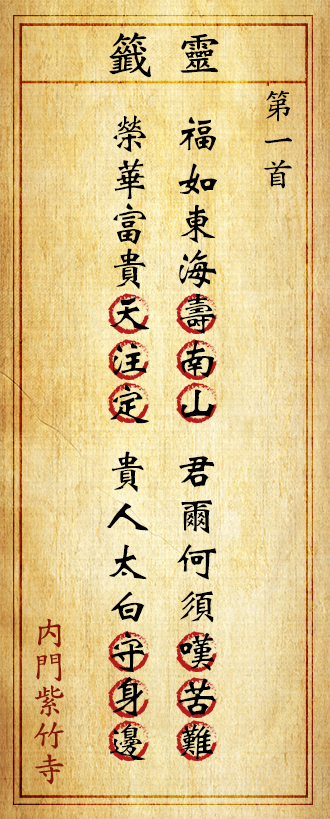 靈籤
第一首
福如東海壽南山
君爾何須嘆苦難
榮華富貴天注定
貴人太白守身邊
内門紫竹寺